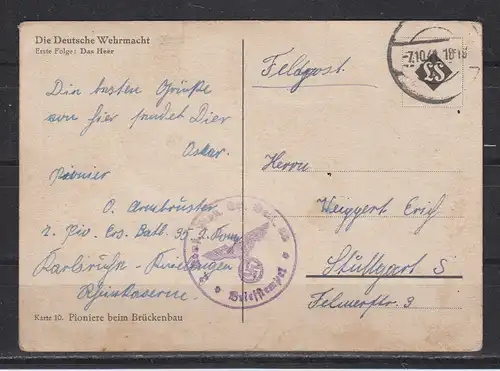 Die Deutsche Wehrmacht
Erste Folge: Das Heer
Die besten Grüße
von hier sendet Dier
Oskar.
Pionier
O. Armbrüster
2. Pio. Ers. Batl. 35 2. Komp.
Karlsruhe - Knielingen
Rheinkaserne
Karte 10. Pioniere beim Brückenbau
Briefstempel
Feldpost.
Herrn
Weiggert Erich
Stuttgart S
3